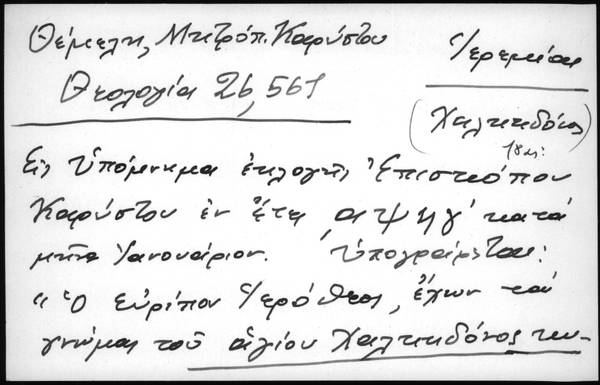 Θέμελη, Μητρόπ. Καρύστου
Ἱερεμίας
Θεολογία 26, 561
(Χαλκηδόνος)
18 αἰ:
Εἰς Ὑπόμνημα ἐκλογῆς Ἐπισκόπου
Καρύστου ἐν ἔτει ͵αψηγ΄ κατὰ
μῆνα Ἰανουάριον. Ὑπογράφεται:
"Ὁ Εὐρίπου Ἱερόθεος, ἔχων καὶ
γνώμας τοῦ ἁγίου Χαλκηδόνος κυ-